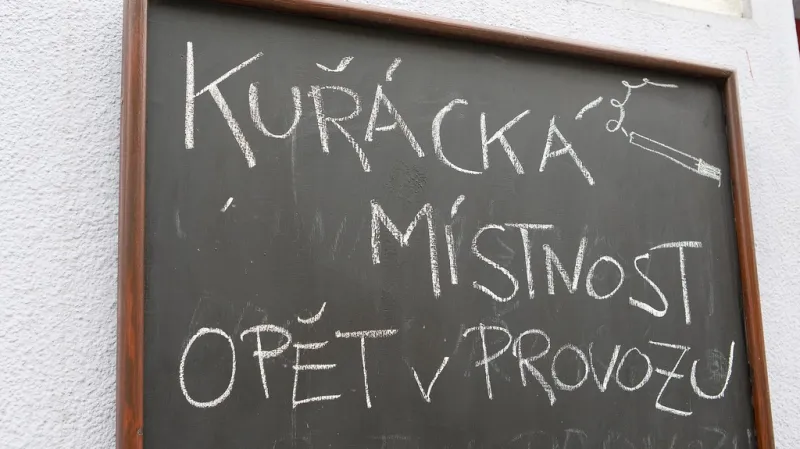 KUŘÁCKÁ
MÍSTNOST
OPĚT V PROVOZU